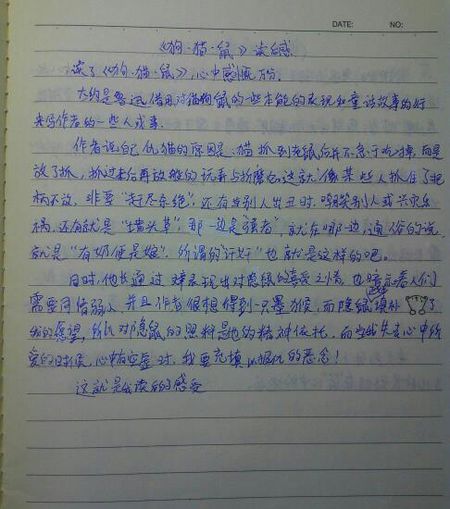 DATE: NO:
《狗·猫·鼠》读后感
读了《狗·猫·鼠》，心中感慨万分。
大约是鲁迅借用对猫狗鼠的一些本能的表现和童话故事的好
来写作者的一些人或事。
作者说自己仇猫的原因是：猫抓到老鼠后并不急于吃掉，而是
放了抓，抓过来后再放的玩弄与折磨。这就像某些人抓住了把
柄不放，非要"赶尽杀绝"，还有当别人出丑时，嘲笑别人或兴灾乐
祸，还有就是"墙头草"，那一边是"强者"，就在哪一边，通俗的说
就是"有奶便是娘"，所谓的"汗奸"也就是这样的吧。
同时，他也通过 表现出对隐鼠的喜爱之情，也暗示着人们
需要同情弱人，并且作者很想得到一只墨猴，而隐鼠填补了
我的愿望，所以对隐鼠的照料是他的精神依托，而当我失去心中所
爱的时候，心中有空虚时，我要充填以报仇的恶念！
这就是我读后的感受